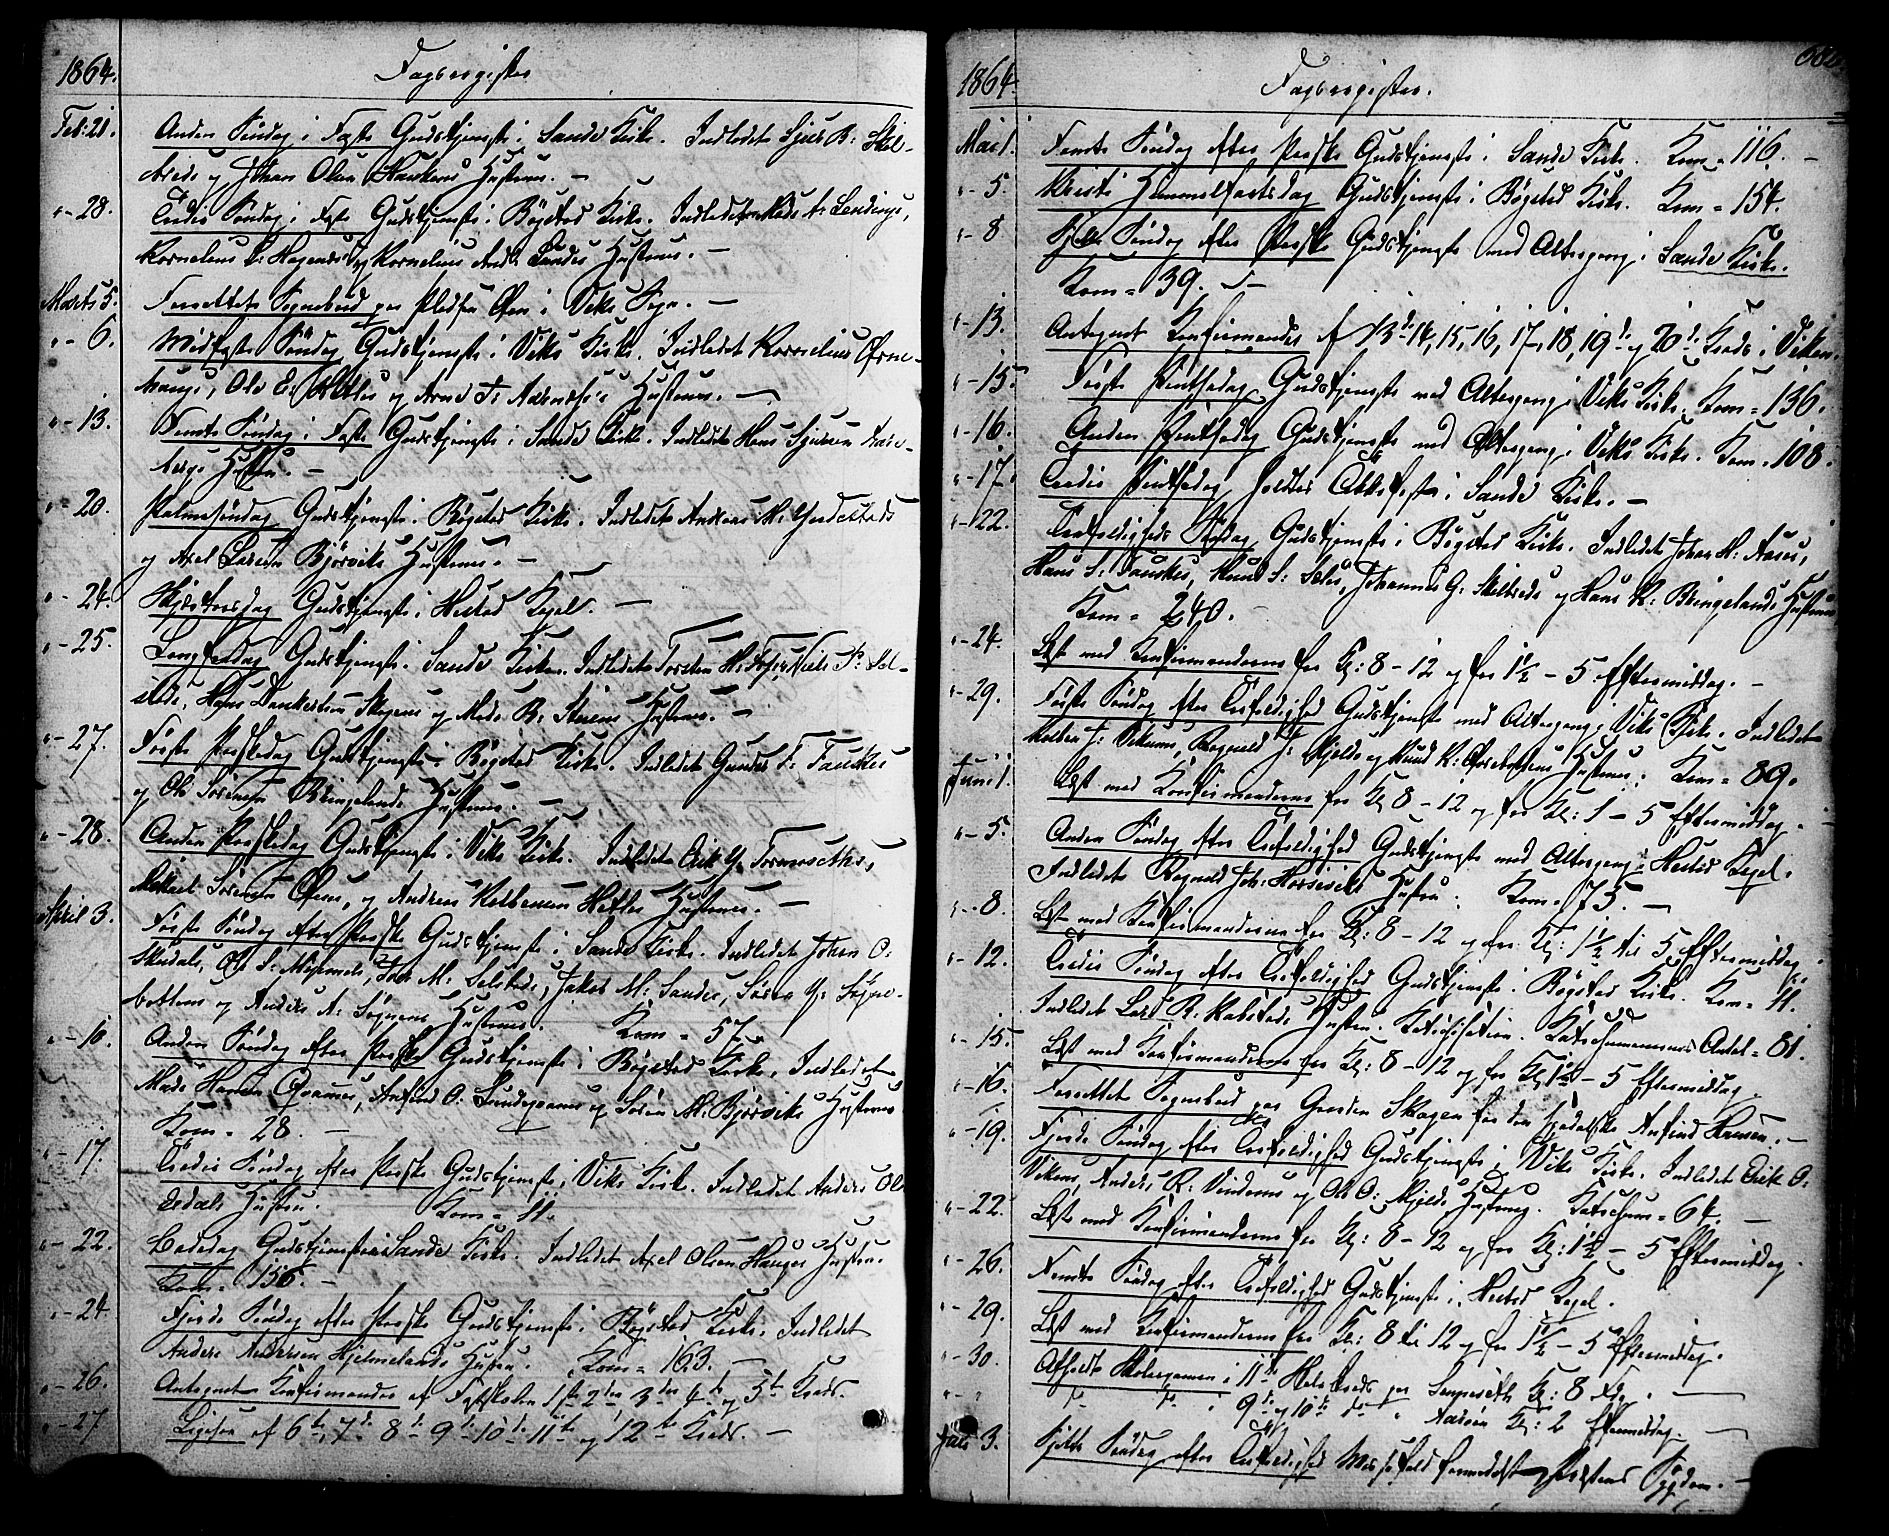 1864. Dagsregister
Feb: 21. Anden Söndag i Faste Gudstjeneste i Sande Kirke. Indledet Sjur B: Skil-
breds og Johan Olsen Haukens Hustruer. —
"- 28. Tredie Söndag i Faste Gudstjeneste i Bÿgstad Kirke. Indledet Mads A:
Kornelius L: og Kornelius And: Lundes Hustruer. —
Marts 5. Forrettet Sognebud paa Pladsen i Viks Sogn. —
"- 6. Midfaste Söndag Gudstjeneste i Viks Kirke. Indledet Kornelius
Ole E: Hetles og Arne J: Hustruer. —
"- 13. Femte Söndag i Faste Gudstjeneste i Sande Kirke. Indledet Hans Sjursen
bergs Hustru. —
"- 20. Palmesöndag Gudstjeneste i Bÿgstad Kirke. Indledet Andreas M: Yndestads
og Axel Larsen Björviks Hustruer. —
"- 24. Skjærtorsdag Gudstjeneste i Hestad Kapel. —
"- 25. Langfredag Gudstjeneste i Sande Kirke. Indledet Torsten H: Niels P: Sel-
steds, Hans Dankertsen Skogens og Mads B: Hustruer. —
"- 27. Förste Paaskedag Gudstjeneste i Bÿgstad Kirke. Indledet Gunder T: Fauskes
og Ole Sörensen Bringelands Hustruer. —
"- 28. Anden Paaskedag Gudstjeneste i Viks Kirke. Indledet Erik
Mikael Sörensen og Andreas Hetles Hustruer. —
April 3. Förste Söndag efter Paaske Gudstjeneste i Sande Kirke. Indledet Johan O:
Ole S: M: Selsteds, Jakob M: Sandes, Sören
og Anders A: Hustruer. Kom = 57. —
"- 10. Anden Söndag efter Paaske Gudstjeneste i Bÿgstad Kirke. Indledet
Mads Hansen Arnfind O: og Sören M: Björviks Hustruer
Kom = 28. —
"- 17. Tredie Söndag efter Paaske Gudstjeneste i Viks Kirke. Indledet Anders
Hustru. Kom = 11.
"- 22. Bededag Gudstjeneste i Sande Kirke. Indledet Axel Olsen Hauges Hustru.
Kom = 156. —
"- 24. Fjerde Söndag efter Paaske Gudstjeneste i Bÿgstad Kirke. Indledet
Anders Andersen Hjelmelands Hustru. Kom = 163. —
"- 26. Antegnet Konfirmander af 1ste 2den 3die 4de og 5te Kreds.
"- 27. Ligesaa af 6te, 7de 8de 9de 10de 11te og 12te Kreds. —
1864. Dagsregister.
Mai 1. Femte Söndag efter Paaske Gudstjeneste i Sande Kirke. Kom = 116. —
"- 5. Kristi Himmelfartsdag Gudstjeneste i Bÿgstad Kirke. Kom = 154.
"- 8 Sjette Söndag efter Paaske Gudstjeneste med Altergang i Sande Kirke.
Kom = 39. —
"- 13. Antegnet Konfirmander af 13de 14, 15, 16, 17, 18, 19de og 20de Kreds i Viken.
"- 15. Förste Pintsedag Gudstjeneste med Altergang i Viks Kirke. Kom = 136.
"- 16. Anden Pintsedag Gudstjeneste med Altergang i Viks Kirke. Kom = 108.
"- 17. Tredie Pintsedag holdtes i Sande Kirke. —
"- 22. Trefoldigheds Söndag Gudstjeneste i Bÿgstad Kirke. Indledet Johan H:
Hans S: Fauskes, S: Johannes G: Skilbreds og Hans K: Bringelands Hustruer
Kom = 240.
"- 24. Læst med Konfirmanderne fra Kl: 8 - 12 og fra 1½ - 5 Eftermiddag. —
"- 29. Förste Söndag efter Trefoldighed Gudstjeneste med Altergang i Viks Kirke. Indledet
J: Vikens, Ragnvald J: og Knud K: Hustruer. Kom = 89.
Juni 1. Læst med Konfirmanderne fra Kl 8 - 12 og fra Kl: 1 - 5 Eftermiddag. —
"- 5. Anden Söndag efter Trefoldighed Gudstjeneste med Altergang i Hestad Kapel.
Indledet Ragnvald Joh: Hustru. Kom = 75. —
"- 8. Læst med Konfirmanderne fra Kl: 8 - 12 og fra Kl: 1½ til 5 Eftermiddag.
"- 12. Tredie Söndag efter Trefoldighed Gudstjeneste i Bÿgstad Kirke. Kom = 11.
Indledet Lars R: Hustru. Katekisation. Antal = 81.
"- 15. Læst med Konfirmanderne fra Kl: 8 - 12 og fra Kl 1½ - 5 Eftermiddag.
"- 16. Forrettet Sognebud paa Gaarden Skogen for den spedalske Anfind Hansen. —
"- 19. Fjerde Söndag efter Trefoldighed Gudstjeneste i Viks Kirke. Indledet Erik O:
Vikens, Anders R: og Ole O: Hustruer. = 64. —
"- 22. Læst med Konfirmanderne fra Kl: 8 - 12 og fra Kl: 1½ - 5 Eftermiddag.
"- 26. Femte Söndag efter Trefoldighed Gudstjeneste i Hestad Kapel.
"- 29. Læst med Konfirmanderne fra Kl: 8 til 12 og fra 1½ - 5 Eftermiddag.
"- 30. Afholdt Skoleexamen i 11te Kreds paa Kl: 8
"- " do do 9de og 10de do " Kl: 2 Eftermiddag. —
Juli 3. Sjette Söndag efter Trefoldighed Messefald formedelst Præstens Sygdom. —